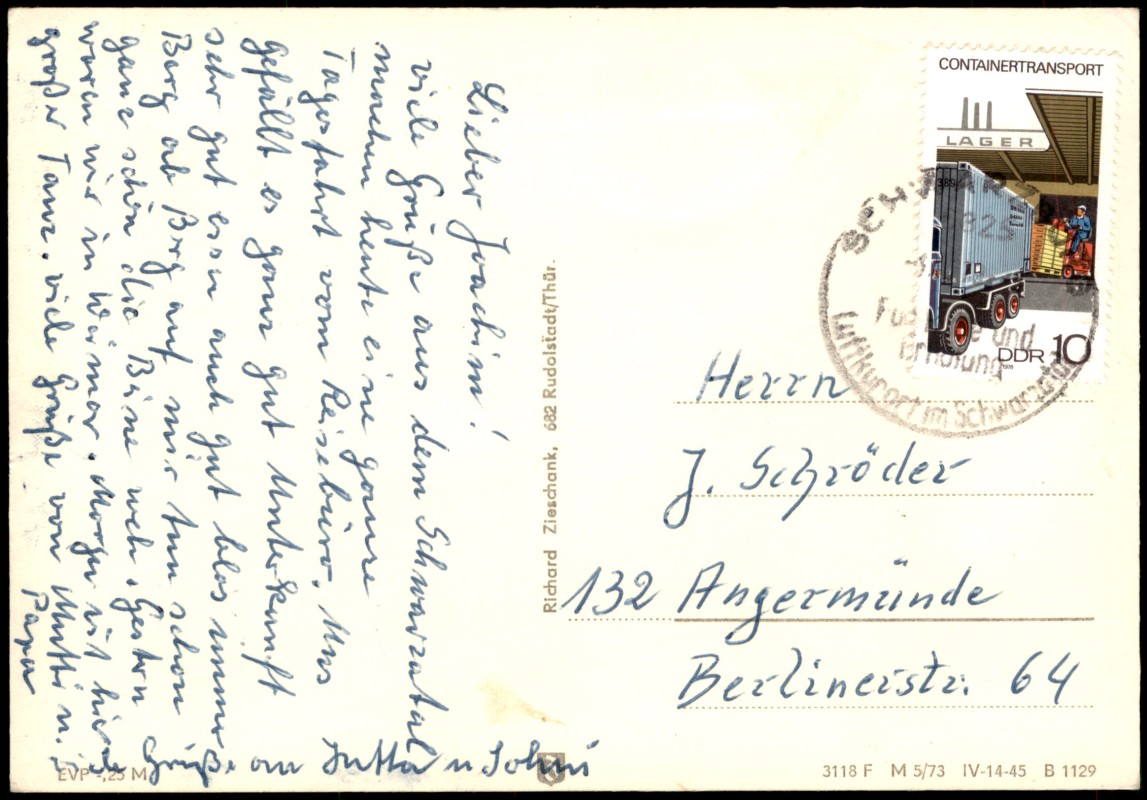 Lieber Joachim!
viele Grüße aus dem Schwarzatal
machen heute eine ganze
Tagesfahrt vom Reisebüro. Uns
gefällt es ganz gut Unterkunft
sehr gut essn auch gut blos immer
Berg ab Berg auf mir tun schon
ganz schön die Beine weh. Gestern
waren wir in Weimar. Morgen ist hier
großer Tanz. viele Grüße von Mutti u.
Papa
Grüße an Jutta u
EVP -,25 M
Richard Zieschank, 682 Rudolstadt/Thür.
CONTAINERTRANSPORT
LAGER
DDR 10
1978
Erholung
Luftkurort im Schwarzatal
Herrn
J. Schröder
132 Angermünde
Berlinerstr. 64
3118 F M 5/73 IV-14-45 B 1129